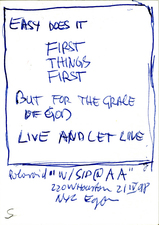 EASY DOES IT
FIRST
THINGS
FIRST
BUT FOR THE GRACE
OF GOD
LIVE AND LET LIVE
Polaroid "W/SID@AA"
220 W Houston 21
NYC
5